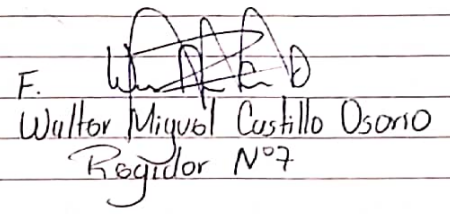 F.
Walter Miguel Castillo Osorio
Regidor Nº7